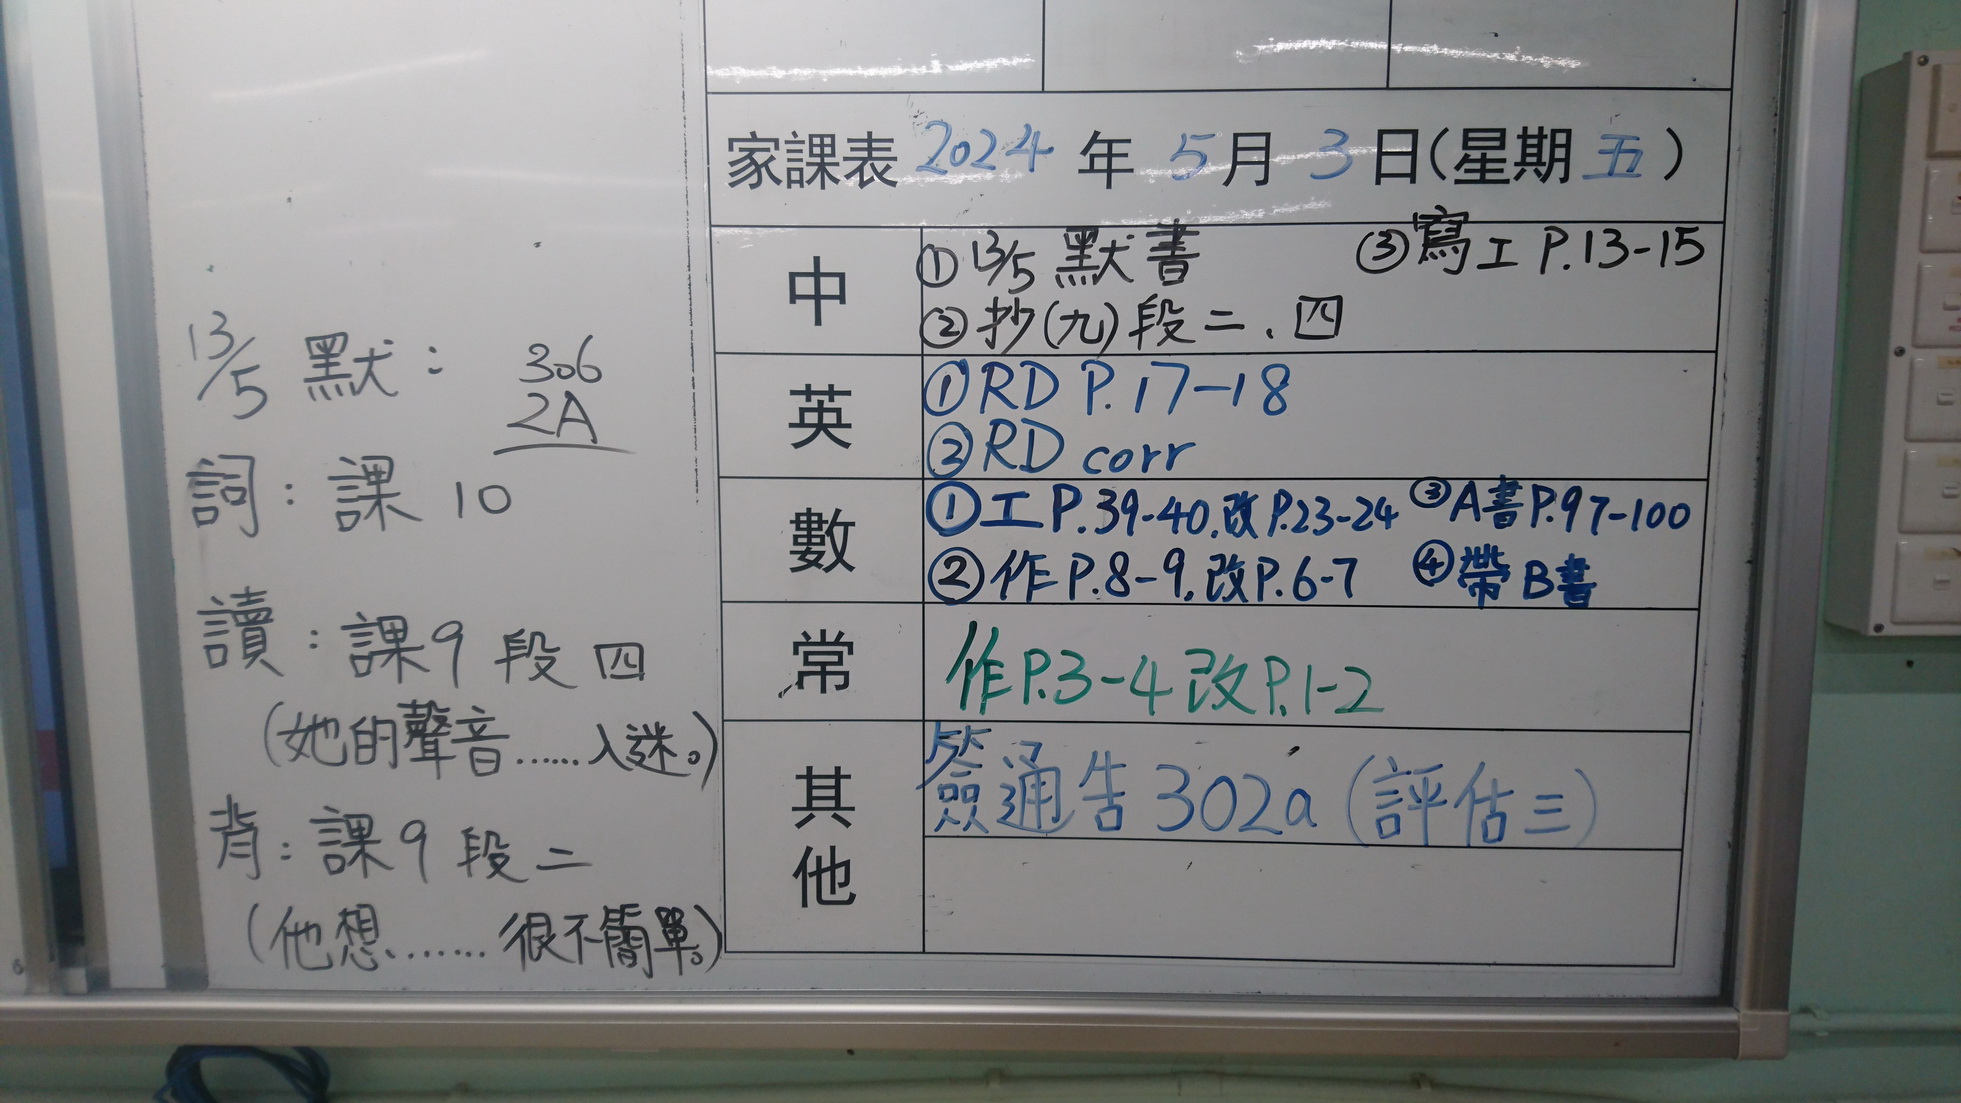 13/5 默：
306
2A
詞：課 10
讀：課9 段四
(她的聲音……入迷。)
背：課9 段二
(他想……很不簡單。)
家課表 2024 年 5 月 3 日(星期五)
中
① 13/5 默書 ③寫工 P.13-15
② 抄(九)段二、四
英
① RD P.17-18
② RD corr
數
① 工 P.39-40.改P.23-24 ③A書P.97-100
② 作 P.8-9.改P.6-7 ④帶B書
常
作P.3-4改P.1-2
其他
簽通告302a(評估三)